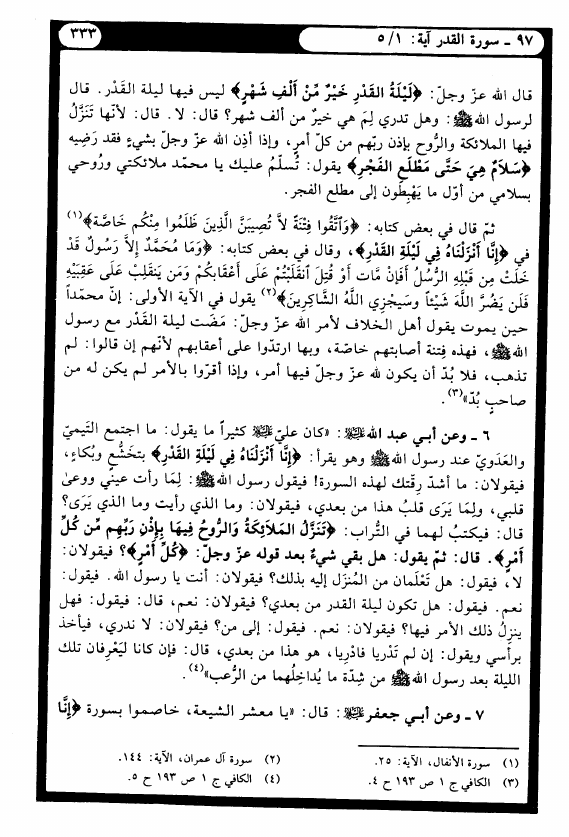 ٩٧ ـ سورة القدر آية: ١/ ٥
٣٣٣
قال الله عزّ وجلّ: ﴿لَيْلَةُ القَدْرِ خَيْرٌ مِّنْ أَلْفِ شَهْرٍ﴾ ليس فيها ليلة القَدْر. قال
لرسول الله ﷺ: وهل تدري لِمَ هي خيرٌ من ألف شهر؟ قال: لا. قال: لأنّها تَنَزَّلُ
فيها الملائكة والرُّوح بإذن ربّهم من كلّ أمرٍ، وإذا أذِن الله عزّ وجلّ بشيءٍ فقد رَضِيه
﴿سَلاَمٌ هِيَ حَتَّى مَطْلَعِ الفَجْرِ﴾ يقول: تُسلِّمُ عليك يا محمّد ملائكتي ورُوحي
بسلامي من أوّل ما يَهبِطون إلى مطلع الفجر.
ثمّ قال في بعض كتابه: ﴿وَاتَّقُوا فِتْنَةً لاَّ تُصِيبَنَّ الَّذِينَ ظَلَمُوا مِنكُم خَاصَّة﴾(١)
في ﴿إِنَّا أَنْزَلْنَاهُ فِي لَيْلَةِ القَدْرِ﴾، وقال في بعض كتابه: ﴿وَمَا مُحَمَّدٌ إِلاَّ رَسُولٌ قَدْ
خَلَتْ مِن قَبْلِهِ الرُّسُلُ أَفَإِنْ مَّات أَوْ قُتِلَ انقَلَبْتُمْ عَلَى أَعْقَابِكُمْ وَمَن يَنقَلِبْ عَلَى عَقِبَيْهِ
فَلَن يَضُرَّ اللَّهَ شَيْئاً وسَيَجْزِي اللَّهُ الشَّاكِرِينَ﴾(٢) يقول في الآية الأولى: إنّ محمّداً
حين يموت يقول أهل الخلاف لأمر الله عزّ وجلّ: مَضَت ليلة القَدْر مع رسول
الله ﷺ، فهذه فِتنة أصابتهم خاصّة، وبها ارتدّوا على أعقابهم لأنّهم إن قالوا: لم
تذهب، فلا بُدّ أن يكون لله عزّ وجلّ فيها أمر، وإذا أقرّوا بالأمر لم يكن له من
صاحبٍ بُدّ»(٣).
٦ ـ وعن أبي عبد الله ﵇: «كان عليّ ﵇ كثيراً ما يقول: ما اجتمع التَيميّ
والعَدَويّ عند رسول الله ﷺ وهو يقرأ: ﴿إِنَّا أَنْزَلْنَاهُ فِي لَيْلَةِ القَدْرِ﴾ بتَخشُّع وبُكاءٍ،
فيقولان: ما أشدّ رِقّتك لهذه السورة! فيقول رسول الله ﷺ: لِمَا رأت عيني ووعىٰ
قلبي، ولِمَا يَرَى قلبُ هذا من بعدي، فيقولان: وما الذي رأيت وما الذي يَرَى؟
قال: فيكتبُ لهما في التُّراب: ﴿تَنَزَّلُ المَلاَئِكَةُ وَالرُّوحُ فِيهَا بِإِذْنِ رَبِّهِم مِّن كُلِّ
أَمْرٍ﴾. قال: ثمّ يقول: هل بقي شيءٌ بعد قوله عزّ وجلّ: ﴿كُلِّ أَمْرٍ﴾؟ فيقولان:
لا، فيقول: هل تَعْلَمان من المُنزَل إليه بذلك؟ فيقولان: أنت يا رسول الله. فيقول:
نعم. فيقول: هل تكون ليلة القدر من بعدي؟ فيقولان: نعم، قال: فيقول: فهل
ينزِلُ ذلك الأمر فيها؟ فيقولان: نعم. فيقول: إلى من؟ فيقولان: لا ندري، فيأخذ
برأسي ويقول: إن لم تَدْريا فادْرِيا، هو هذا من بعدي، قال: فإن كانا ليَعْرِفان تلك
الليلة بعد رسول الله ﷺ من شِدّة ما يُداخِلُهما من الرُّعب»(٤).
٧ ـ وعن أبي جعفر ﵇: قال: «يا معشر الشيعة، خاصموا بسورة ﴿إِنَّا
(١) سورة الأنفال، الآية: ٢٥.
(٢) سورة آل عمران، الآية: ١٤٤.
(٣) الكافي ج ١ ص ١٩٣ ح ٤.
(٤) الكافي ج ١ ص ١٩٣ ح ٥.